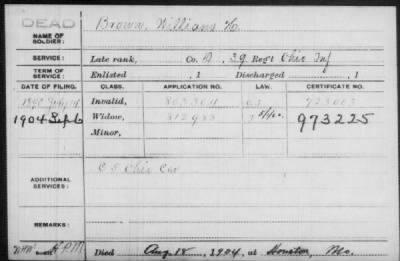 DEAD
NAME OF SOLDIER: Brown, William H.
SERVICE: Late rank, Co. A, 39 Reg't Ohio Inf
TERM OF SERVICE: Enlisted , 1 Discharged , 1
DATE OF FILING. CLASS. APPLICATION NO. LAW. CERTIFICATE NO.
1890 July Invalid,
1904 Sep 6 Widow, 973225
Minor,
ADDITIONAL SERVICES: Ohio Cav
REMARKS:
Died Aug 18, 1904, at Houston, Mo.